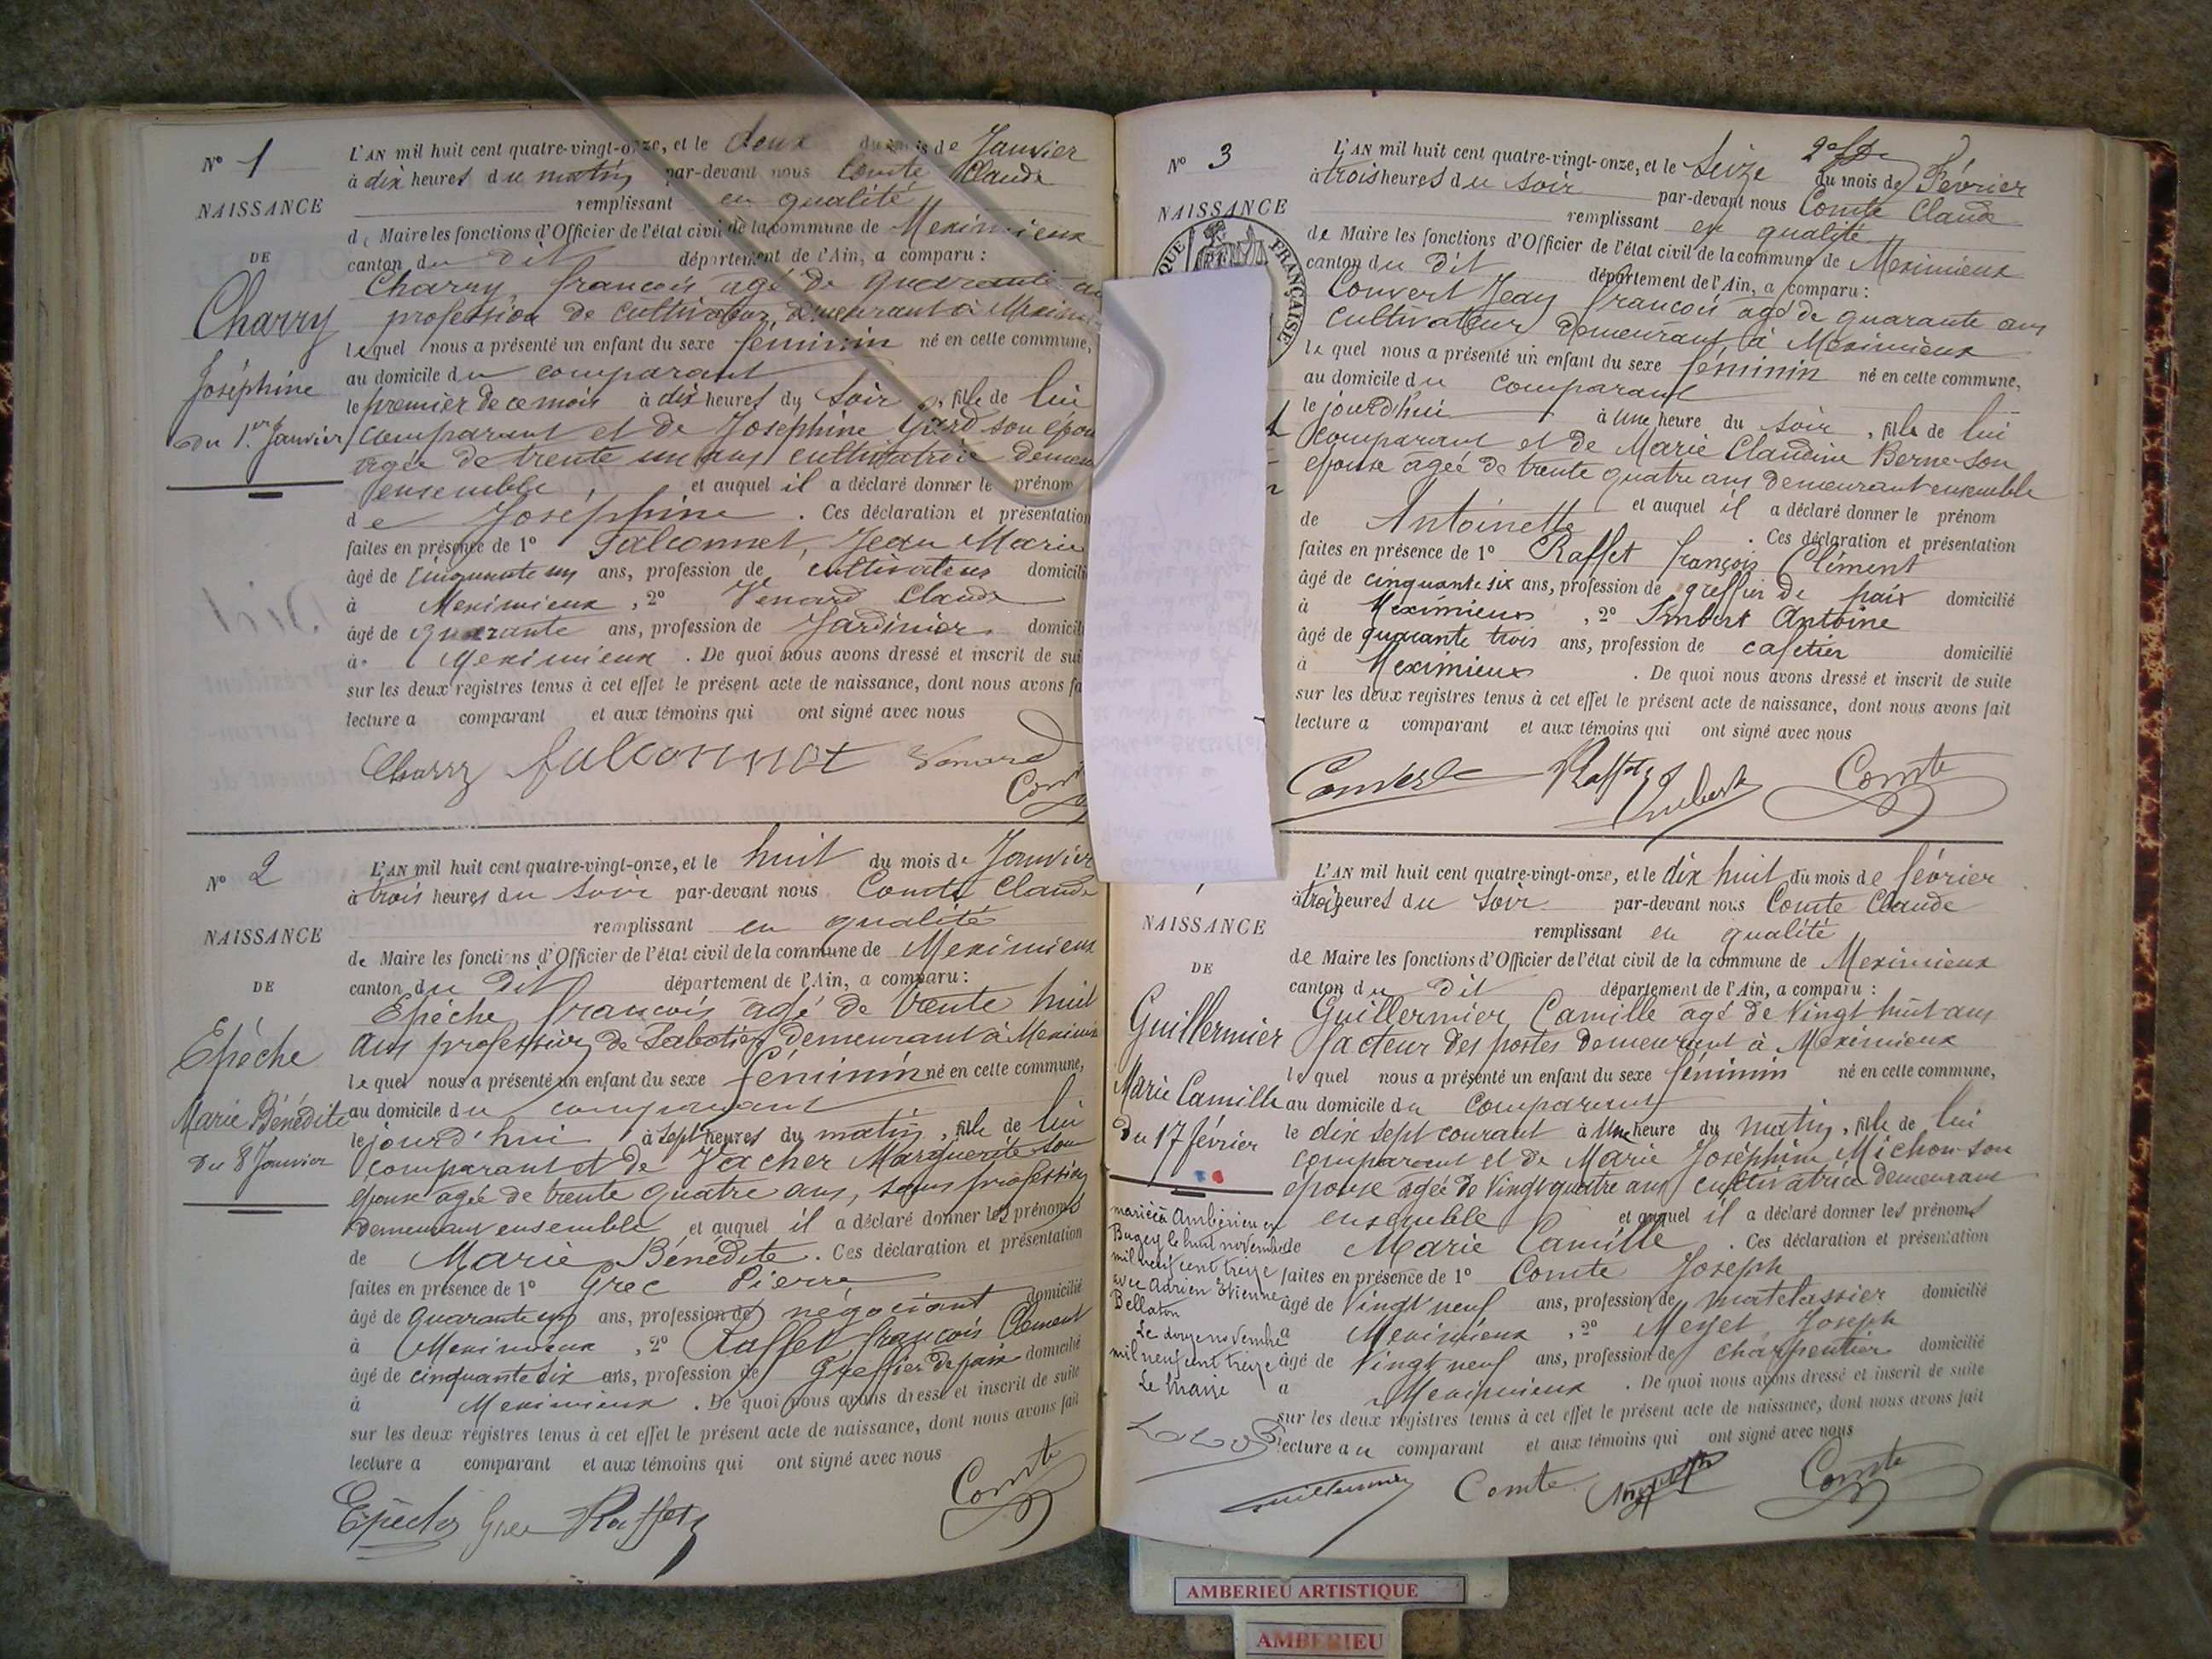 N° 1
NAISSANCE
DE
Charry
Joséphine
du 1er Janvier
L'AN mil huit cent quatre-vingt-onze, et le deux du mois de Janvier
à dix heures du matin par-devant nous Comte Claude
remplissant en qualité
de Maire les fonctions d'Officier de l'état civil de la commune de Meximieux
canton du dit département de l'Ain, a comparu :
Charry, françois agé de quarante
profession de cultivateur, demeurant à
lequel nous a présenté un enfant du sexe féminin né en cette commune,
au domicile du comparant
le premier de ce mois à dix heures du soir, fille de lui
comparant et de Joséphine son
agée de trente un ans cultivatrice
ensemble, et auquel il a déclaré donner le prénom
de Joséphine. Ces déclaration et présentation
faites en présence de 1° Falconnet, Jean Marie
âgé de cinquante un ans, profession de cultivateur
à Meximieux, 2° Venard Claude
âgé de quarante ans, profession de Jardinier
à Meximieux. De quoi nous avons dressé et inscrit de
sur les deux registres tenus à cet effet le présent acte de naissance, dont nous avons
lecture a comparant et aux témoins qui ont signé avec nous
Charry falconnet Venard
N° 2
NAISSANCE
DE
Epèche
Marie Bénédite
du 8 Janvier
L'AN mil huit cent quatre-vingt-onze, et le huit du mois de Janvier
à trois heures du soir par-devant nous Comte Claude
remplissant en qualité
de Maire les fonctions d'Officier de l'état civil de la commune de Meximieux
canton du dit département de l'Ain, a comparu :
Epèche, françois agé de trente huit
ans profession de Sabotier demeurant à
lequel nous a présenté un enfant du sexe féminin né en cette commune,
au domicile du comparant
le jourd'hui à sept heures du matin, fille de lui
comparant et de Vacher Marguerite son
épouse agée de trente quatre ans, sans profession
demeurant ensemble, et auquel il a déclaré donner les prénoms
de Marie Bénédite. Ces déclaration et présentation
faites en présence de 1° Grec Pierre
âgé de quarante un ans, profession de négociant domicilié
à Meximieux, 2° Raffet françois Clément
âgé de cinquante six ans, profession de greffier de paix domicilié
à Meximieux. De quoi nous avons dressé et inscrit de suite
sur les deux registres tenus à cet effet le présent acte de naissance, dont nous avons fait
lecture a comparant et aux témoins qui ont signé avec nous
Epèche Grec Raffet Comte
N° 3
NAISSANCE
FRANÇAISE
L'AN mil huit cent quatre-vingt-onze, et le Seize du mois de Février
à trois heures du soir par-devant nous Comte Claude
remplissant en qualité
de Maire les fonctions d'Officier de l'état civil de la commune de Meximieux
canton du dit département de l'Ain, a comparu :
Convert Jean françois agé de quarante ans
cultivateur demeurant à Meximieux
lequel nous a présenté un enfant du sexe féminin né en cette commune,
au domicile du comparant
le jourd'hui à une heure du soir, fille de lui
comparant et de Marie Claudine Berne son
épouse agée de trente quatre ans demeurant ensemble
et auquel il a déclaré donner le prénom
de Antoinette. Ces déclaration et présentation
faites en présence de 1° Raffet françois Clément
âgé de cinquante six ans, profession de greffier de paix domicilié
à Meximieux, 2° Imbert Antoine
âgé de quarante trois ans, profession de cafetier domicilié
à Meximieux. De quoi nous avons dressé et inscrit de suite
sur les deux registres tenus à cet effet le présent acte de naissance, dont nous avons fait
lecture a comparant et aux témoins qui ont signé avec nous
Convert Raffet Imbert Comte
NAISSANCE
DE
Guillermier
Marie Camille
du 17 février
mariée à Ambérieu en
Bugey le huit novembre
mil neuf cent treize
avec Adrien Etienne
Bellaton
Le douze novembre
mil neuf cent treize
Le Maire
L'AN mil huit cent quatre-vingt-onze, et le dix huit du mois de février
à trois heures du soir par-devant nous Comte Claude
remplissant en qualité
de Maire les fonctions d'Officier de l'état civil de la commune de Meximieux
canton du dit département de l'Ain, a comparu :
Guillermier Camille agé de vingt huit ans
facteur des postes demeurant à Meximieux
lequel nous a présenté un enfant du sexe féminin né en cette commune,
au domicile du comparant
le dix sept courant à une heure du matin, fille de lui
comparant et de Marie Joséphine Michon son
épouse agée de vingt quatre ans cultivatrice demeurant
ensemble et auquel il a déclaré donner les prénoms
de Marie Camille. Ces déclaration et présentation
faites en présence de 1° Comte Joseph
âgé de vingt neuf ans, profession de matelassier domicilié
à Meximieux, 2° Joseph
âgé de vingt neuf ans, profession de charpentier domicilié
à Meximieux. De quoi nous avons dressé et inscrit de suite
sur les deux registres tenus à cet effet le présent acte de naissance, dont nous avons fait
lecture au comparant et aux témoins qui ont signé avec nous
Guillermier Comte Comte
AMBERIEU ARTISTIQUE
AMBERIEU